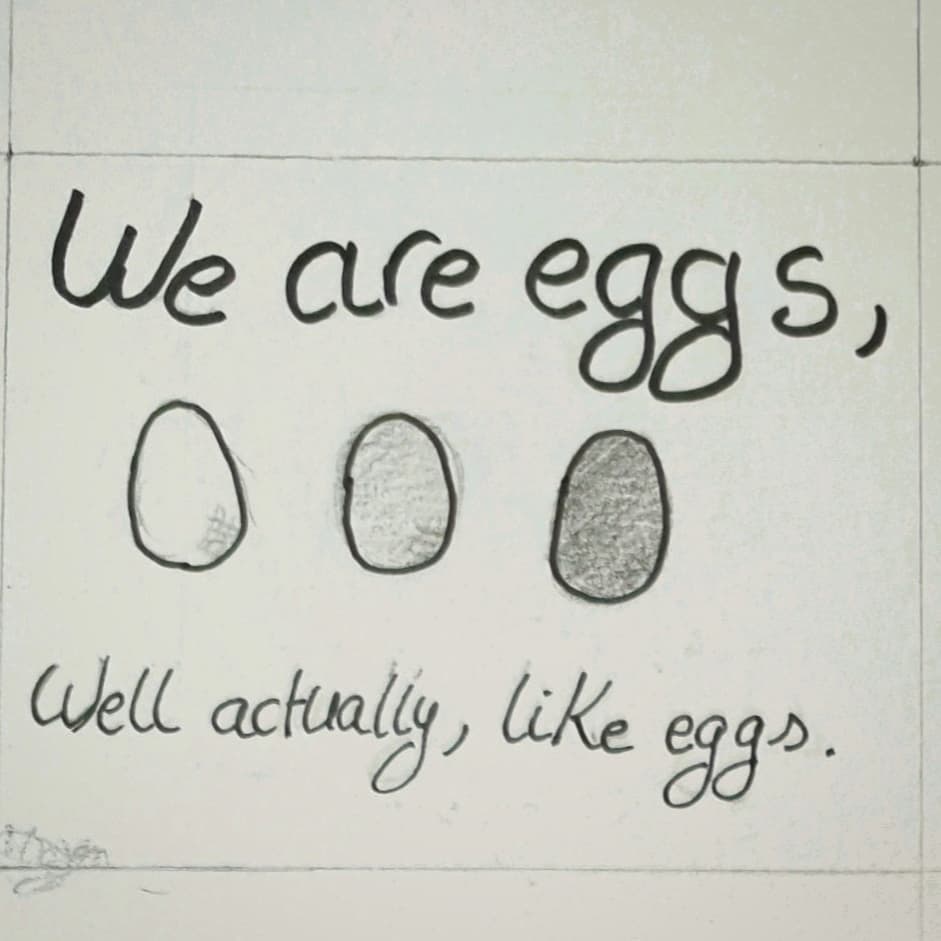 We are eggs,
Well actually, like eggs.